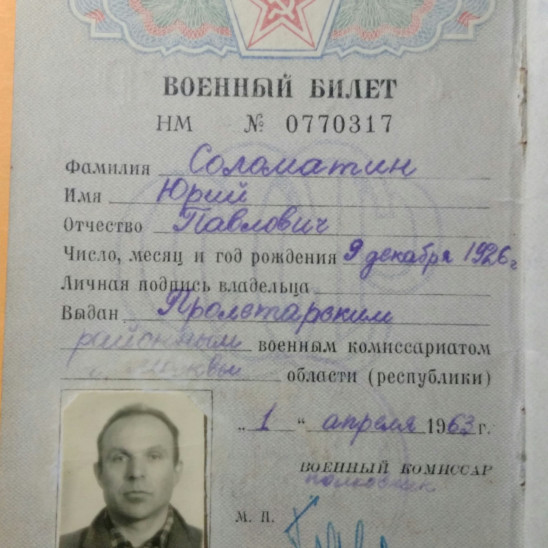 ВОЕННЫЙ БИЛЕТ
НМ № 0770317
Фамилия Соломатин
Имя Юрий
Отчество Павлович
Число, месяц и год рождения 9 декабря 1926 г
Личная подпись владельца
Выдан Пролетарским
районным военным комиссариатом
Москвы области (республики)
„ 1 “ апреля 1963 г.
ВОЕННЫЙ КОМИССАР
полковник
М. П.